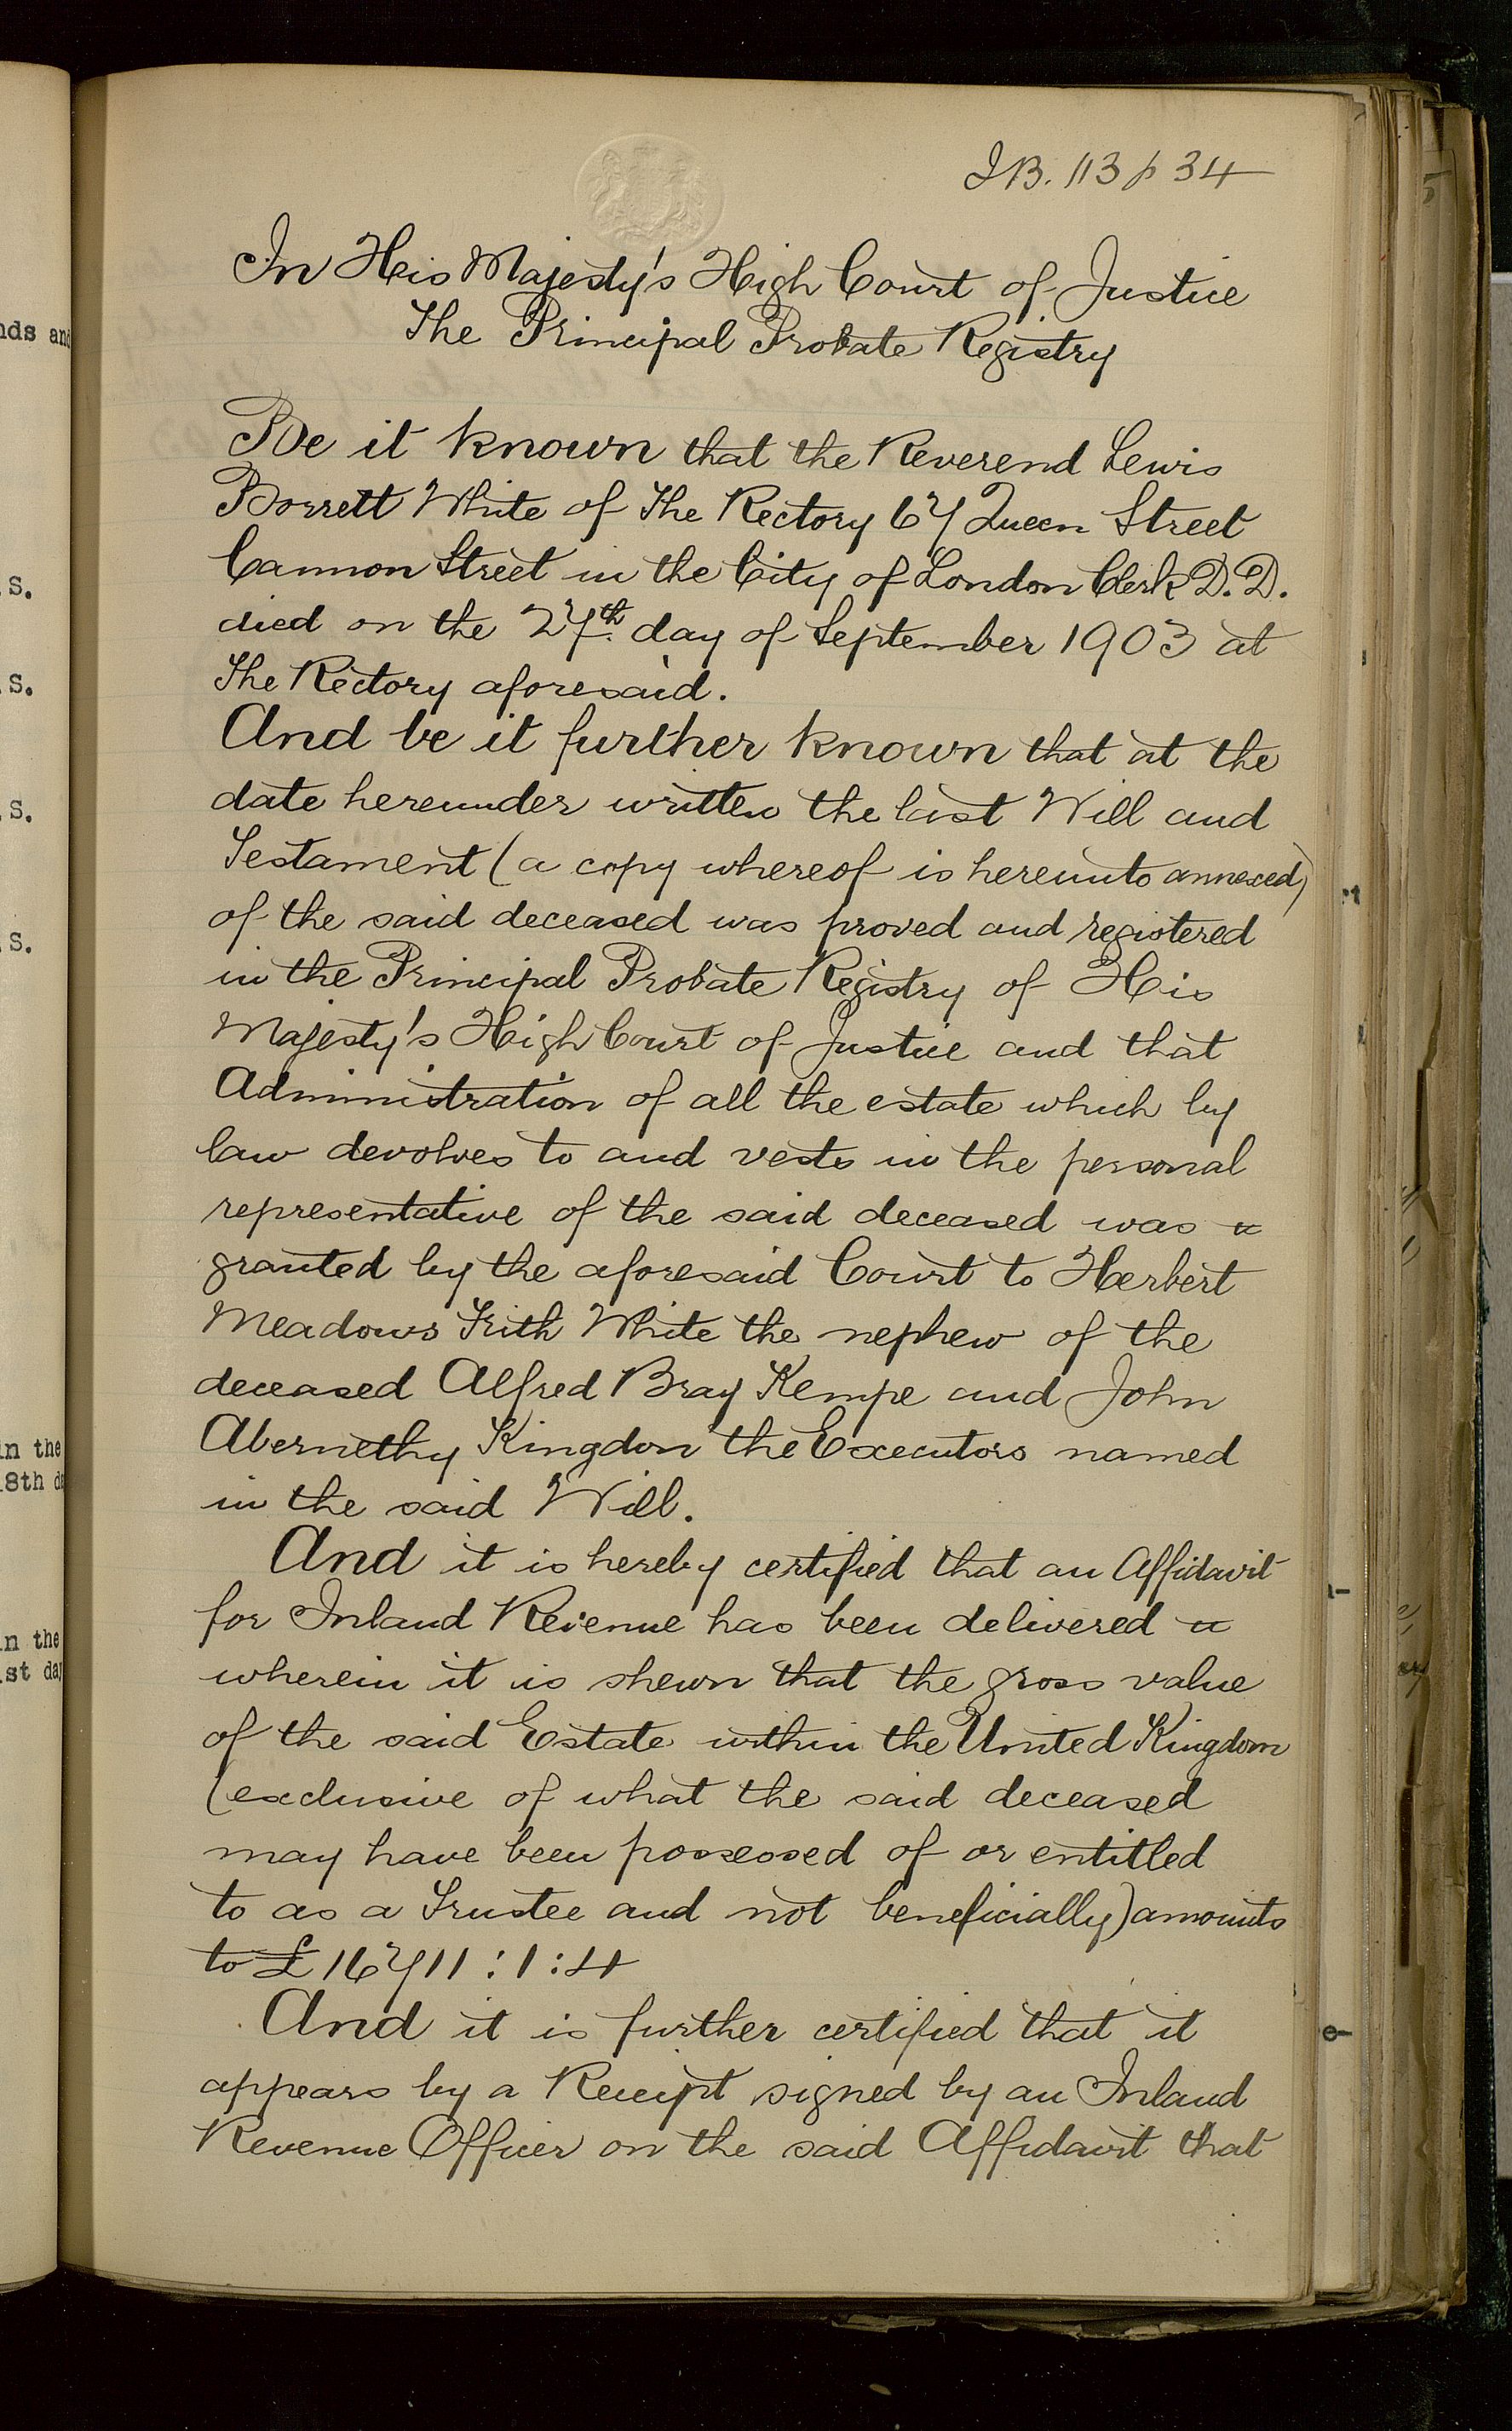 nds and
S.
S.
S.
S.
in the
18th
in the
1st day
I B. 113 p 34
In His Majesty's High Court of Justice
The Principal Probate Registry
Be it known that the Reverend Lewis
Borrett White of The Rectory 67 Queen Street
Cannon Street in the City of London Clerk D.D.
died on the 27th day of September 1903 at
The Rectory aforesaid.
And be it further known that at the
date hereunder written the last Will and
Testament (a copy whereof is hereunto annexed)
of the said deceased was proved and registered
in the Principal Probate Registry of His
Majesty's High Court of Justice and that
Administration of all the estate which by
law devolves to and vests in the personal
representative of the said deceased was
granted by the aforesaid Court to Herbert
Meadows Frith White the nephew of the
deceased Alfred Bray Kempe and John
Abernethy Kingdon the Executors named
in the said Will.
And it is hereby certified that an Affidavit
for Inland Revenue has been delivered
wherein it is shewn that the gross value
of the said Estate within the United Kingdom
(exclusive of what the said deceased
may have been possessed of or entitled
to as a Trustee and not beneficially) amounts
to £16711:1:4
And it is further certified that it
appears by a Receipt signed by an Inland
Revenue Officer on the said Affidavit that